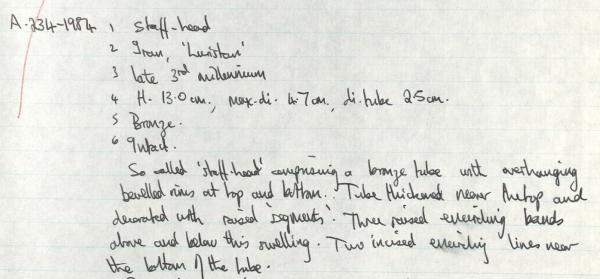 A.234-1984 1 Staff-head
2 Iran, 'Luristan'
3 late 3rd millennium
4 H. 13.0 cm., max. di. 4.7 cm, di. tube 2.5 cm.
5 Bronze.
6 Intact.
So called 'staff-head' comprising a bronze tube with overhanging
bevelled rims at top and bottom. Tube thickened near the top and
decorated with raised 'segments'. Three raised encircling bands
above and below this swelling. Two incised encircling lines near
the bottom of the tube.